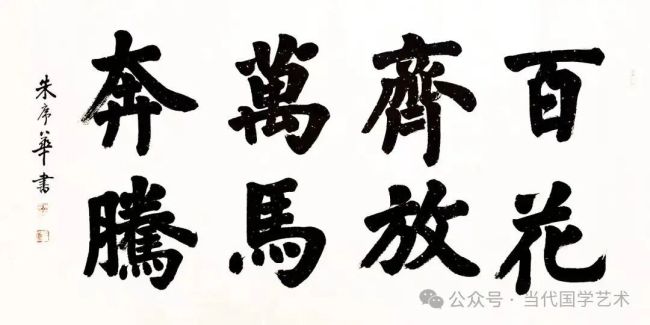 百花
齊放
萬馬
奔騰
朱席華書
公众号·当代国学艺术